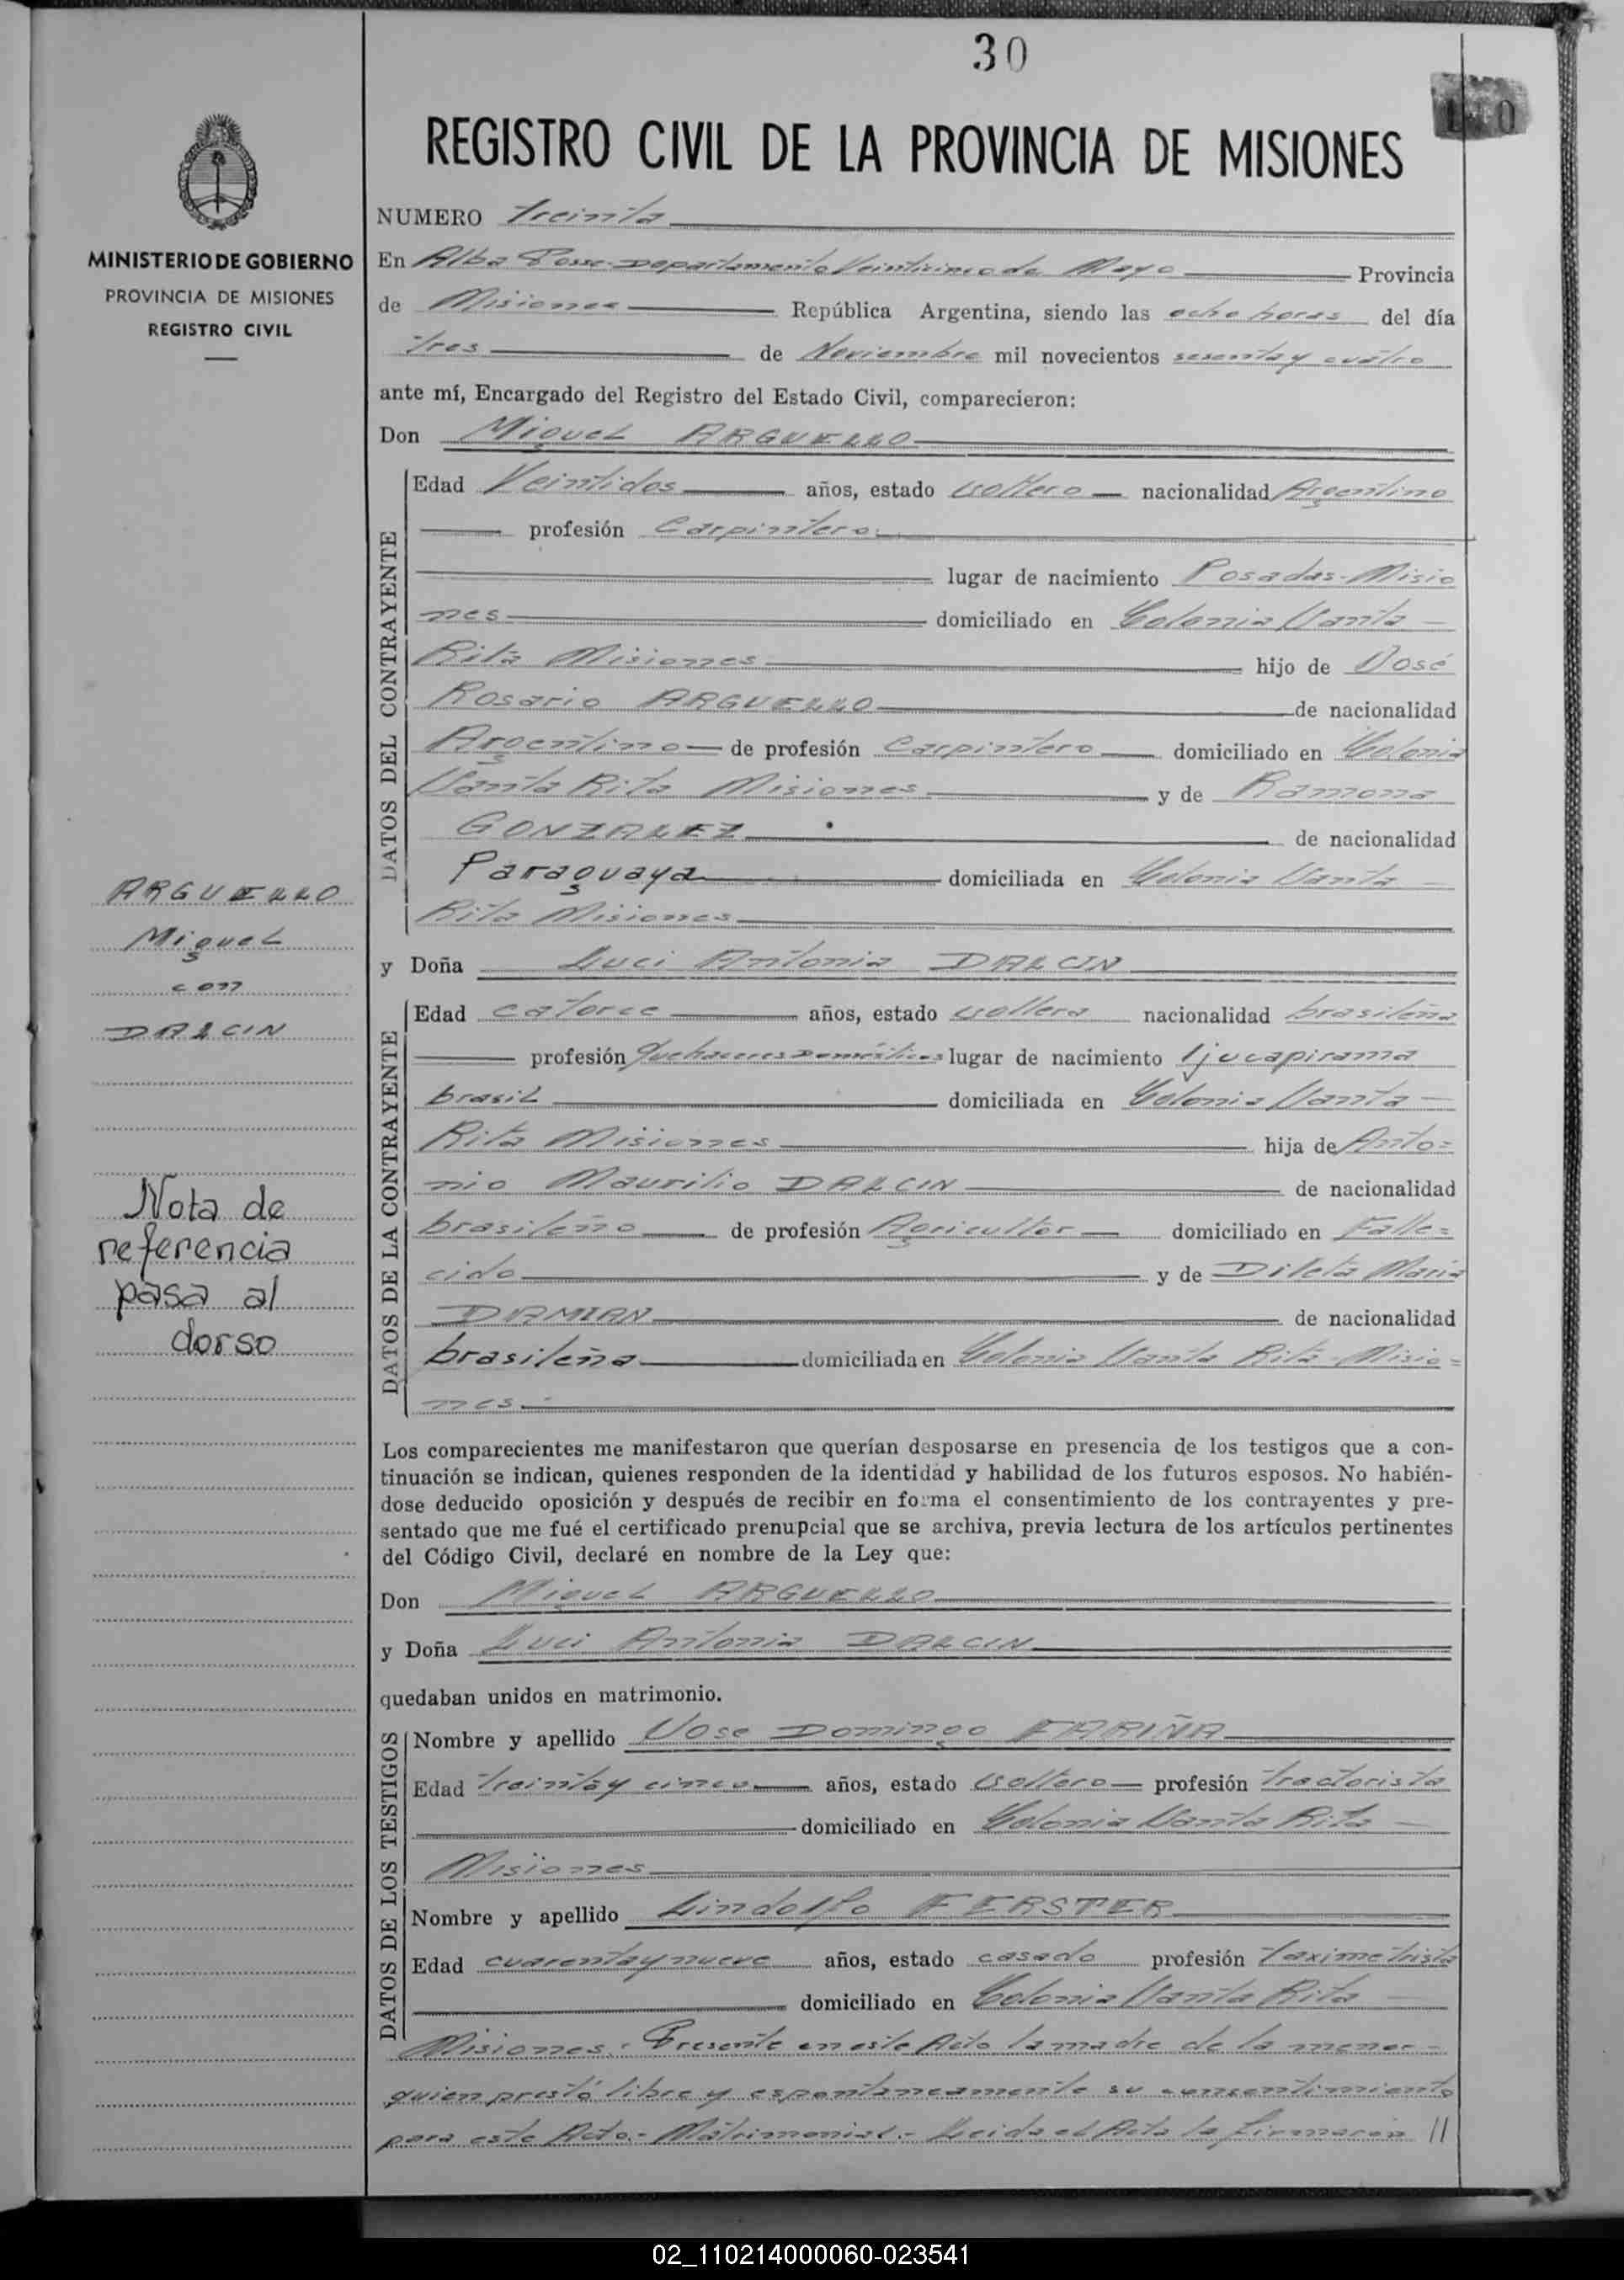 30
REGISTRO CIVIL DE LA PROVINCIA DE MISIONES
MINISTERIO DE GOBIERNO
PROVINCIA DE MISIONES
REGISTRO CIVIL
NUMERO Treinta
En Alba Posse-Departamento Veinticinco de Mayo Provincia
de Misiones República Argentina, siendo las ocho horas del día
tres de Noviembre mil novecientos sesenta y cuatro
ante mí, Encargado del Registro del Estado Civil, comparecieron:
Don Miguel ARGUELLO
DATOS DEL CONTRAYENTE
Edad Veintidos años, estado soltero nacionalidad Argentino
profesión Carpintero
lugar de nacimiento Posadas-Misio
nes domiciliado en Colonia Santa
Rita Misiones hijo de José
Rosario ARGUELLO de nacionalidad
Argentino de profesión Carpintero domiciliado en Colonia
Santa Rita Misiones y de Ramona
GONZALEZ de nacionalidad
Paraguaya domiciliada en Colonia Santa
Rita Misiones
ARGUELLO
Miguel
con
DALCIN
y Doña Luci Antonia DALCIN
DATOS DE LA CONTRAYENTE
Edad catorce años, estado soltera nacionalidad brasileña
profesión Quehaceres Domésticos lugar de nacimiento Ijucapirama
brasil domiciliada en Colonia Santa
Rita Misiones hija de Anto=
nio Maurilio DALCIN de nacionalidad
brasileño de profesión Agricultor domiciliado en Falle=
cido y de Dileta María
DAMIAN de nacionalidad
brasileña domiciliada en Colonia Santa Rita-Misio=
nes.
Nota de
referencia
pasa al
dorso
Los comparecientes me manifestaron que querían desposarse en presencia de los testigos que a con-
tinuación se indican, quienes responden de la identidad y habilidad de los futuros esposos. No habién-
dose deducido oposición y después de recibir en forma el consentimiento de los contrayentes y pre-
sentado que me fué el certificado prenupcial que se archiva, previa lectura de los artículos pertinentes
del Código Civil, declaré en nombre de la Ley que:
Don Miguel ARGUELLO
y Doña Luci Antonia DALCIN
quedaban unidos en matrimonio.
DATOS DE LOS TESTIGOS
Nombre y apellido Jose Domingo FARIÑA
Edad treinta y cinco años, estado soltero profesión tractorista
domiciliado en Colonia Santa Rita
Misiones
Nombre y apellido Lindolfo FERSTER
Edad cuarenta y nueve años, estado casado profesión taximetrista
domiciliado en Colonia Santa Rita
Misiones. Presente en este Acto la madre de la menor
quien prestó libre y espontaneamente su consentimiento
para este Acto.- Matrimonial.- Leida el Acta la firmaron //
02_110214000060-023541